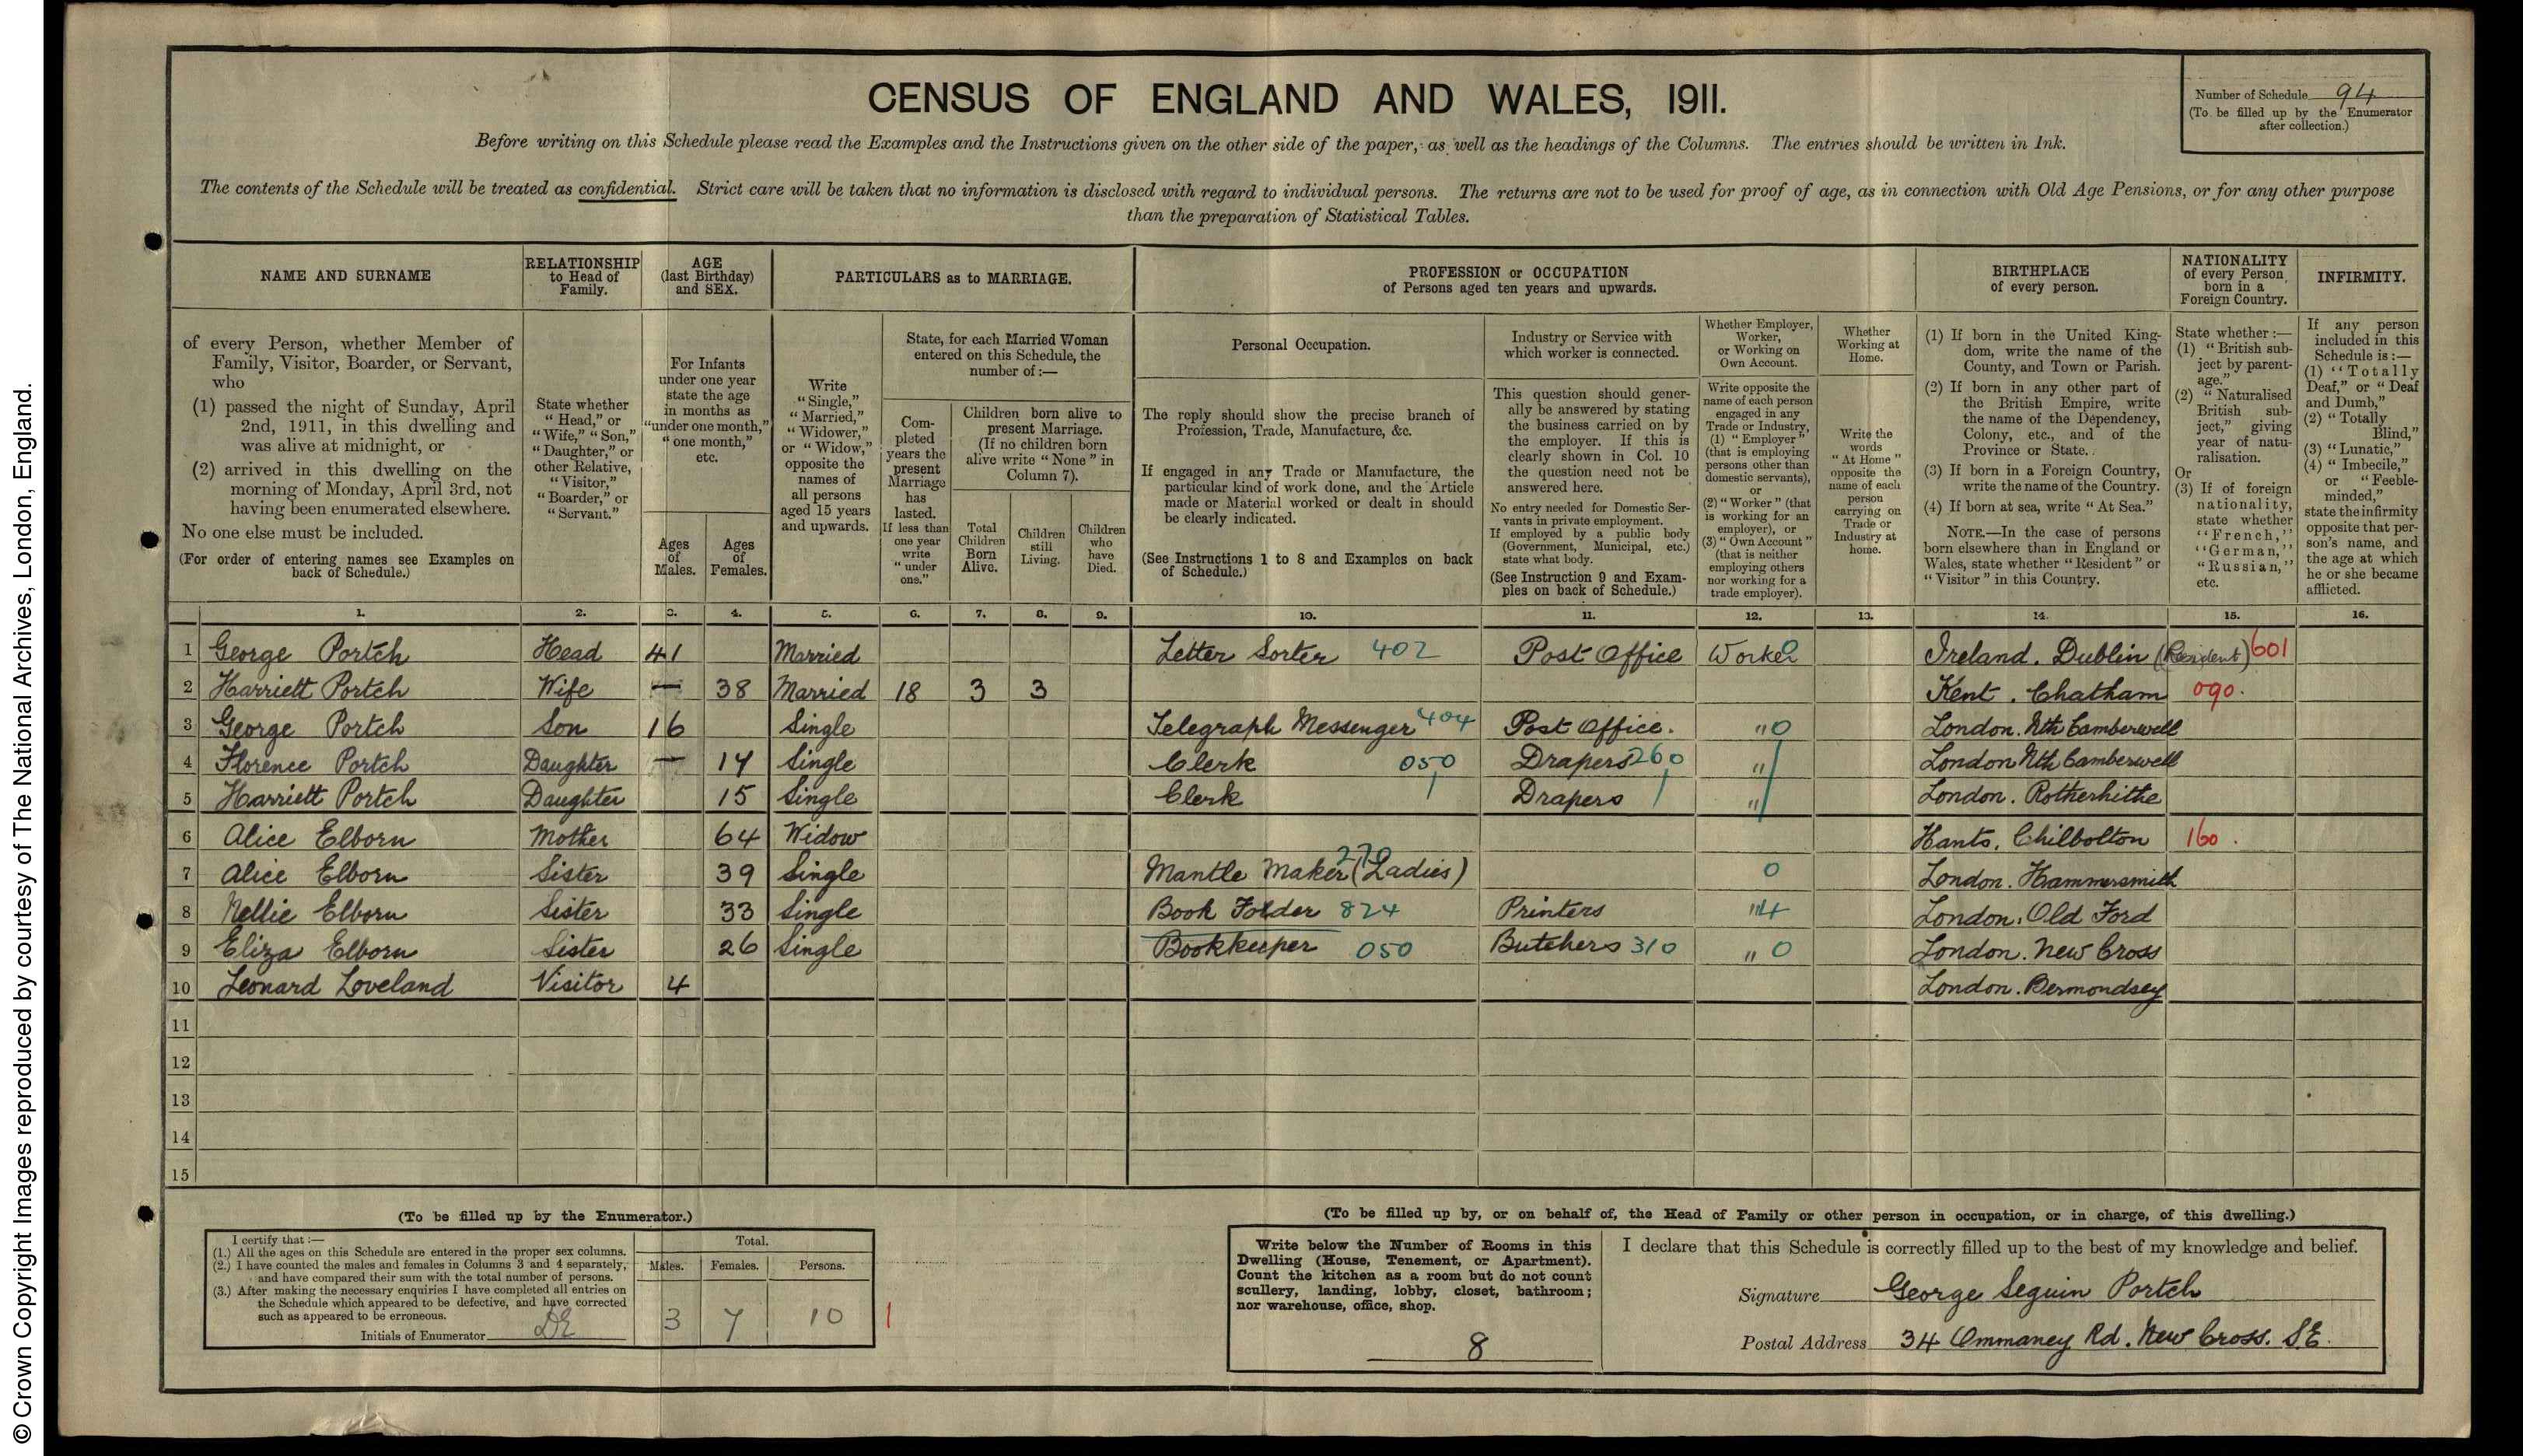 © Crown Copyright Images reproduced by courtesy of The National Archives, London, England.
CENSUS OF ENGLAND AND WALES, 1911.
Number of Schedule 94
(To be filled up by the Enumerator
after collection.)
Before writing on this Schedule please read the Examples and the Instructions given on the other side of the paper, as well as the headings of the Columns. The entries should be written in Ink.
The contents of the Schedule will be treated as confidential. Strict care will be taken that no information is disclosed with regard to individual persons. The returns are not to be used for proof of age, as in connection with Old Age Pensions, or for any other purpose
than the preparation of Statistical Tables.
NAME AND SURNAME
of every Person, whether Member of
Family, Visitor, Boarder, or Servant,
who
(1) passed the night of Sunday, April
2nd, 1911, in this dwelling and
was alive at midnight, or
(2) arrived in this dwelling on the
morning of Monday, April 3rd, not
having been enumerated elsewhere.
No one else must be included.
(For order of entering names see Examples on
back of Schedule.)
RELATIONSHIP
to Head of
Family.
State whether
"Head," or
"Wife," "Son,"
"Daughter," or
other Relative,
"Visitor,"
"Boarder," or
"Servant."
AGE
(last Birthday)
and SEX.
For Infants
under one year
state the age
in months as
"under one month,"
"one month,"
etc.
Ages
of
Males.
Ages
of
Females.
PARTICULARS as to MARRIAGE.
Write
"Single,"
"Married,"
"Widower,"
or "Widow,"
opposite the
names of
all persons
aged 15 years
and upwards.
State, for each Married Woman
entered on this Schedule, the
number of :—
Com-
pleted
years the
present
Marriage
has
lasted.
If less than
one year
write
"under
one."
Children born alive to
present Marriage.
(If no children born
alive write "None" in
Column 7).
Total
Children
Born
Alive.
Children
still
Living.
Children
who
have
Died.
PROFESSION or OCCUPATION
of Persons aged ten years and upwards.
Personal Occupation.
The reply should show the precise branch of
Profession, Trade, Manufacture, &c.
If engaged in any Trade or Manufacture, the
particular kind of work done, and the Article
made or Material worked or dealt in should
be clearly indicated.
(See Instructions 1 to 8 and Examples on back
of Schedule.)
Industry or Service with
which worker is connected.
This question should gener-
ally be answered by stating
the business carried on by
the employer. If this is
clearly shown in Col. 10
the question need not be
answered here.
No entry needed for Domestic Ser-
vants in private employment.
If employed by a public body
(Government, Municipal, etc.)
state what body.
(See Instruction 9 and Exam-
ples on back of Schedule.)
Whether Employer,
Worker,
or Working on
Own Account.
Write opposite the
name of each person
engaged in any
Trade or Industry,
(1) "Employer"
(that is employing
persons other than
domestic servants),
or
(2) "Worker" (that
is working for an
employer), or
(3) "Own Account"
(that is neither
employing others
nor working for a
trade employer).
Whether
Working at
Home.
Write the
words
"At Home"
opposite the
name of each
person
carrying on
Trade or
Industry at
home.
BIRTHPLACE
of every person.
(1) If born in the United King-
dom, write the name of the
County, and Town or Parish.
(2) If born in any other part of
the British Empire, write
the name of the Dependency,
Colony, etc., and of the
Province or State.
(3) If born in a Foreign Country,
write the name of the Country.
(4) If born at sea, write "At Sea."
NOTE.—In the case of persons
born elsewhere than in England or
Wales, state whether "Resident" or
"Visitor" in this Country.
NATIONALITY
of every Person
born in a
Foreign Country.
State whether :—
(1) "British sub-
ject by parent-
age."
(2) "Naturalised
British sub-
ject," giving
year of natu-
ralisation.
Or
(3) If of foreign
nationality,
state whether
"French,"
"German,"
"Russian,"
etc.
INFIRMITY.
If any person
included in this
Schedule is :—
(1) "Totally
Deaf," or "Deaf
and Dumb,"
(2) "Totally
Blind,"
(3) "Lunatic,"
(4) "Imbecile,"
or "Feeble-
minded,"
state the infirmity
opposite that per-
son's name, and
the age at which
he or she became
afflicted.
1. 2. 3. 4. 5. 6. 7. 8. 9. 10. 11. 12. 13. 14. 15. 16.
1 George Portch Head 41 Married Letter Sorter 402 Post Office Worker 0 Ireland. Dublin (Resident) 601
2 Harriett Portch Wife — 38 Married 18 3 3 Kent. Chatham 090.
3 George Portch Son 16 Single Telegraph Messenger 404 Post Office. " 0 London. Nth Camberwell
4 Florence Portch Daughter — 14 Single Clerk 050 Drapers 260 " London Nth Camberwell
5 Harriett Portch Daughter 15 Single Clerk Drapers " London. Rotherhithe
6 Alice Elborn Mother 64 Widow Hants. Chilbolton 160.
7 Alice Elborn Sister 39 Single Mantle Maker (Ladies) 270 0 London. Hammersmith
8 Nellie Elborn Sister 33 Single Book Folder 824 Printers " 4 London. Old Ford
9 Eliza Elborn Sister 26 Single Bookkeeper 050 Butchers 310 " 0 London. New Cross
10 Leonard Loveland Visitor 4 London. Bermondsey
11
12
13
14
15
(To be filled up by the Enumerator.)
I certify that :—
(1.) All the ages on this Schedule are entered in the proper sex columns.
(2.) I have counted the males and females in Columns 3 and 4 separately,
and have compared their sum with the total number of persons.
(3.) After making the necessary enquiries I have completed all entries on
the Schedule which appeared to be defective, and have corrected
such as appeared to be erroneous.
Initials of Enumerator DE
Total.
Males. Females. Persons.
3 7 10 1
(To be filled up by, or on behalf of, the Head of Family or other person in occupation, or in charge, of this dwelling.)
Write below the Number of Rooms in this
Dwelling (House, Tenement, or Apartment).
Count the kitchen as a room but do not count
scullery, landing, lobby, closet, bathroom;
nor warehouse, office, shop.
8
I declare that this Schedule is correctly filled up to the best of my knowledge and belief.
Signature George Seguin Portch
Postal Address 34 Ommaney Rd. New Cross. S.E.